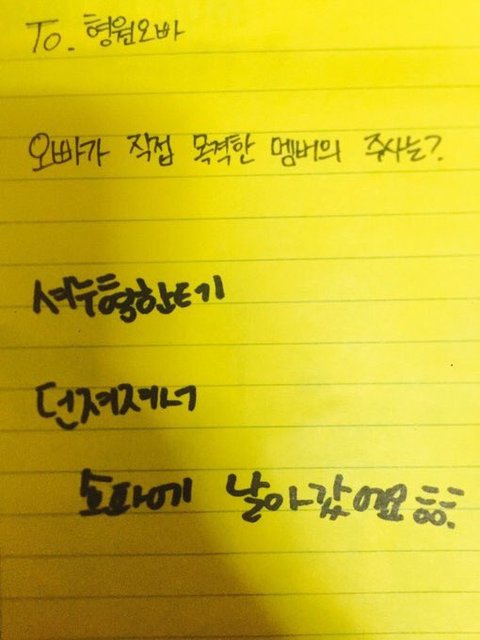 To. 형원오빠
오빠가 직접 목격한 멤버의 주사는?
셔누형한테
던져져서
소파에 날아갔어요